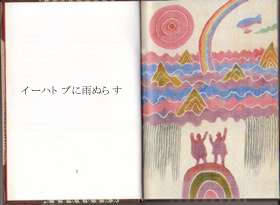 イーハトブに雨ぬらす